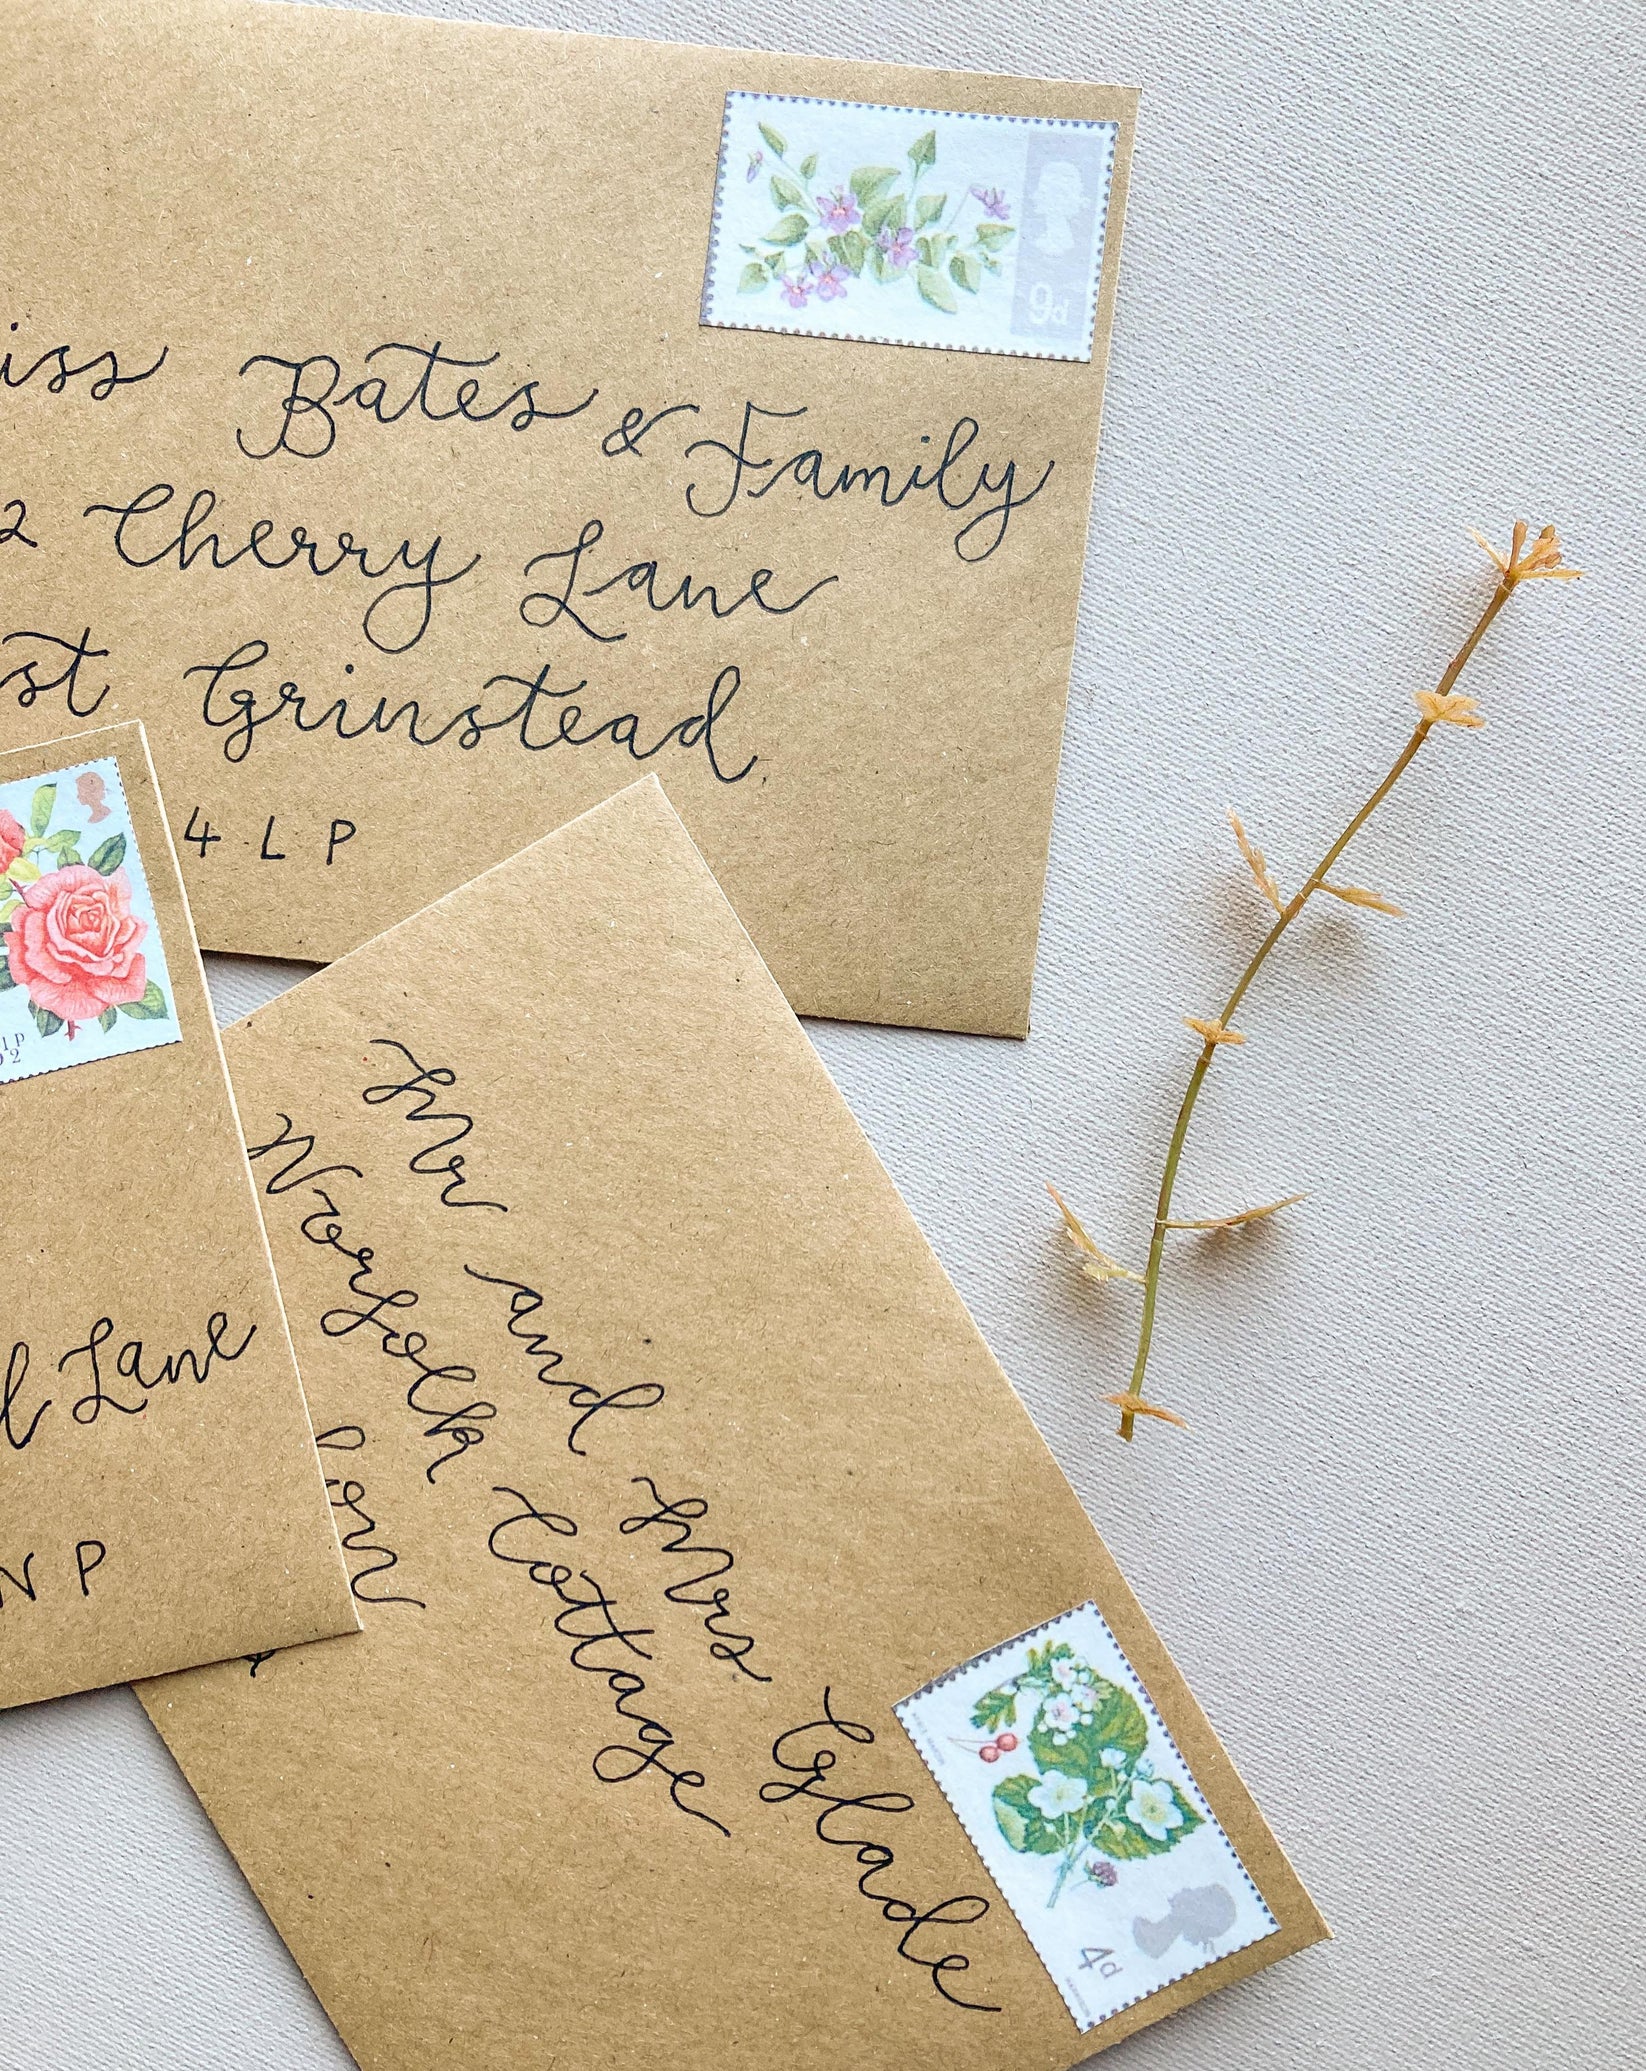 9d
iss Bates & Family
2 Cherry Lane
st Grinstead
4 L P
l Lane
N P
Mr and Mrs Glade
Norfolk Cottage
4d